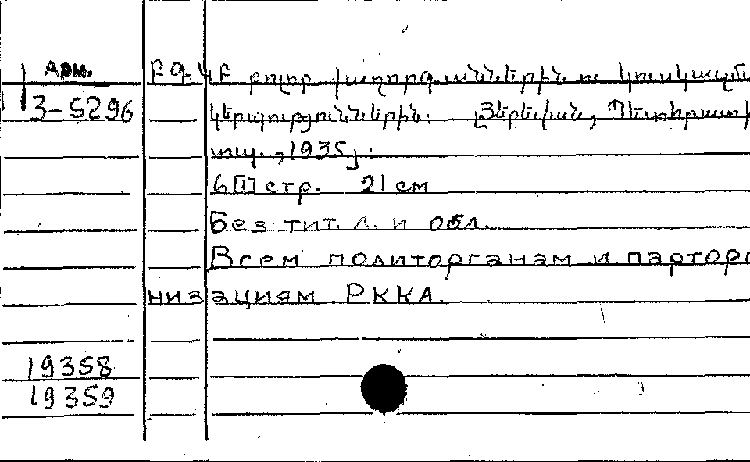 Арм.
ԲԳԿԲ բոլոր քաղորգաններին ու կուսկազմա
3-5296
կերպություններին. [Երևան, Պետհրատ
տպ., 1935].
6 [1] стр. 21 см
Без тит. л. и обл.
Всем политорганам и парторга
низациям РККА.
19358
19359